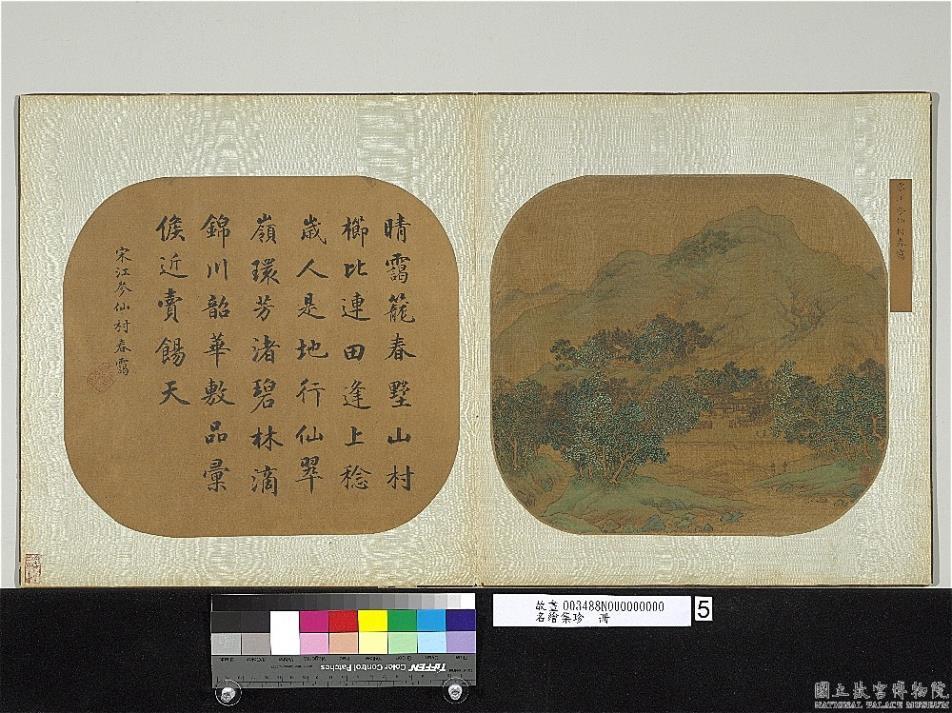 晴靄籠春墅山村
櫛比連田逢上稔
歲人是地行仙翠
嶺環芳渚碧林滴
錦川韶華敷品彙
候近賣餳天
宋江參仙村春靄
故畫 003488N000000000
名繪集珍 冊
5
TIFFEN Color Control Patches
國立故宮博物院
NATIONAL PALACE MUSEUM